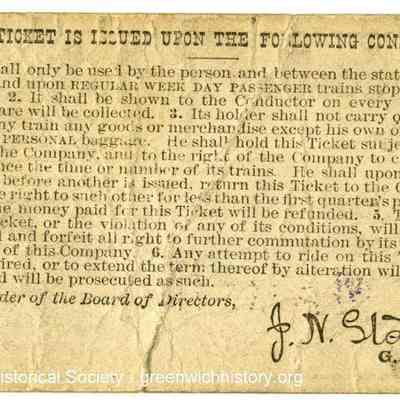 TICKET IS ISSUED UPON THE FOLLOWING CON
all only be used by the person and between the stat
and upon REGULAR WEEK DAY PASSENGER trains stop
2. It shall be shown to the Conductor on every
are will be collected. 3. Its holder shall not carry o
ny train any goods or merchandise except his own o
PERSONAL baggage. He shall hold this Ticket subje
the Company, and to the right of the Company to c
nce the time or number of its trains. He shall upon
before another is issued, return this Ticket to the C
e right to such other for less than the first quarter's p
e money paid for this Ticket will be refunded. 5. T
icket, or the violation of any of its conditions, will
l and forfeit all right to further commutation by its
of this Company 6. Any attempt to ride on this
ired, or to extend the term thereof by alteration will
d will be prosecuted as such.
der of the Board of Directors,
J. N. Sta
G.
istorical Society - greenwichhistory.org